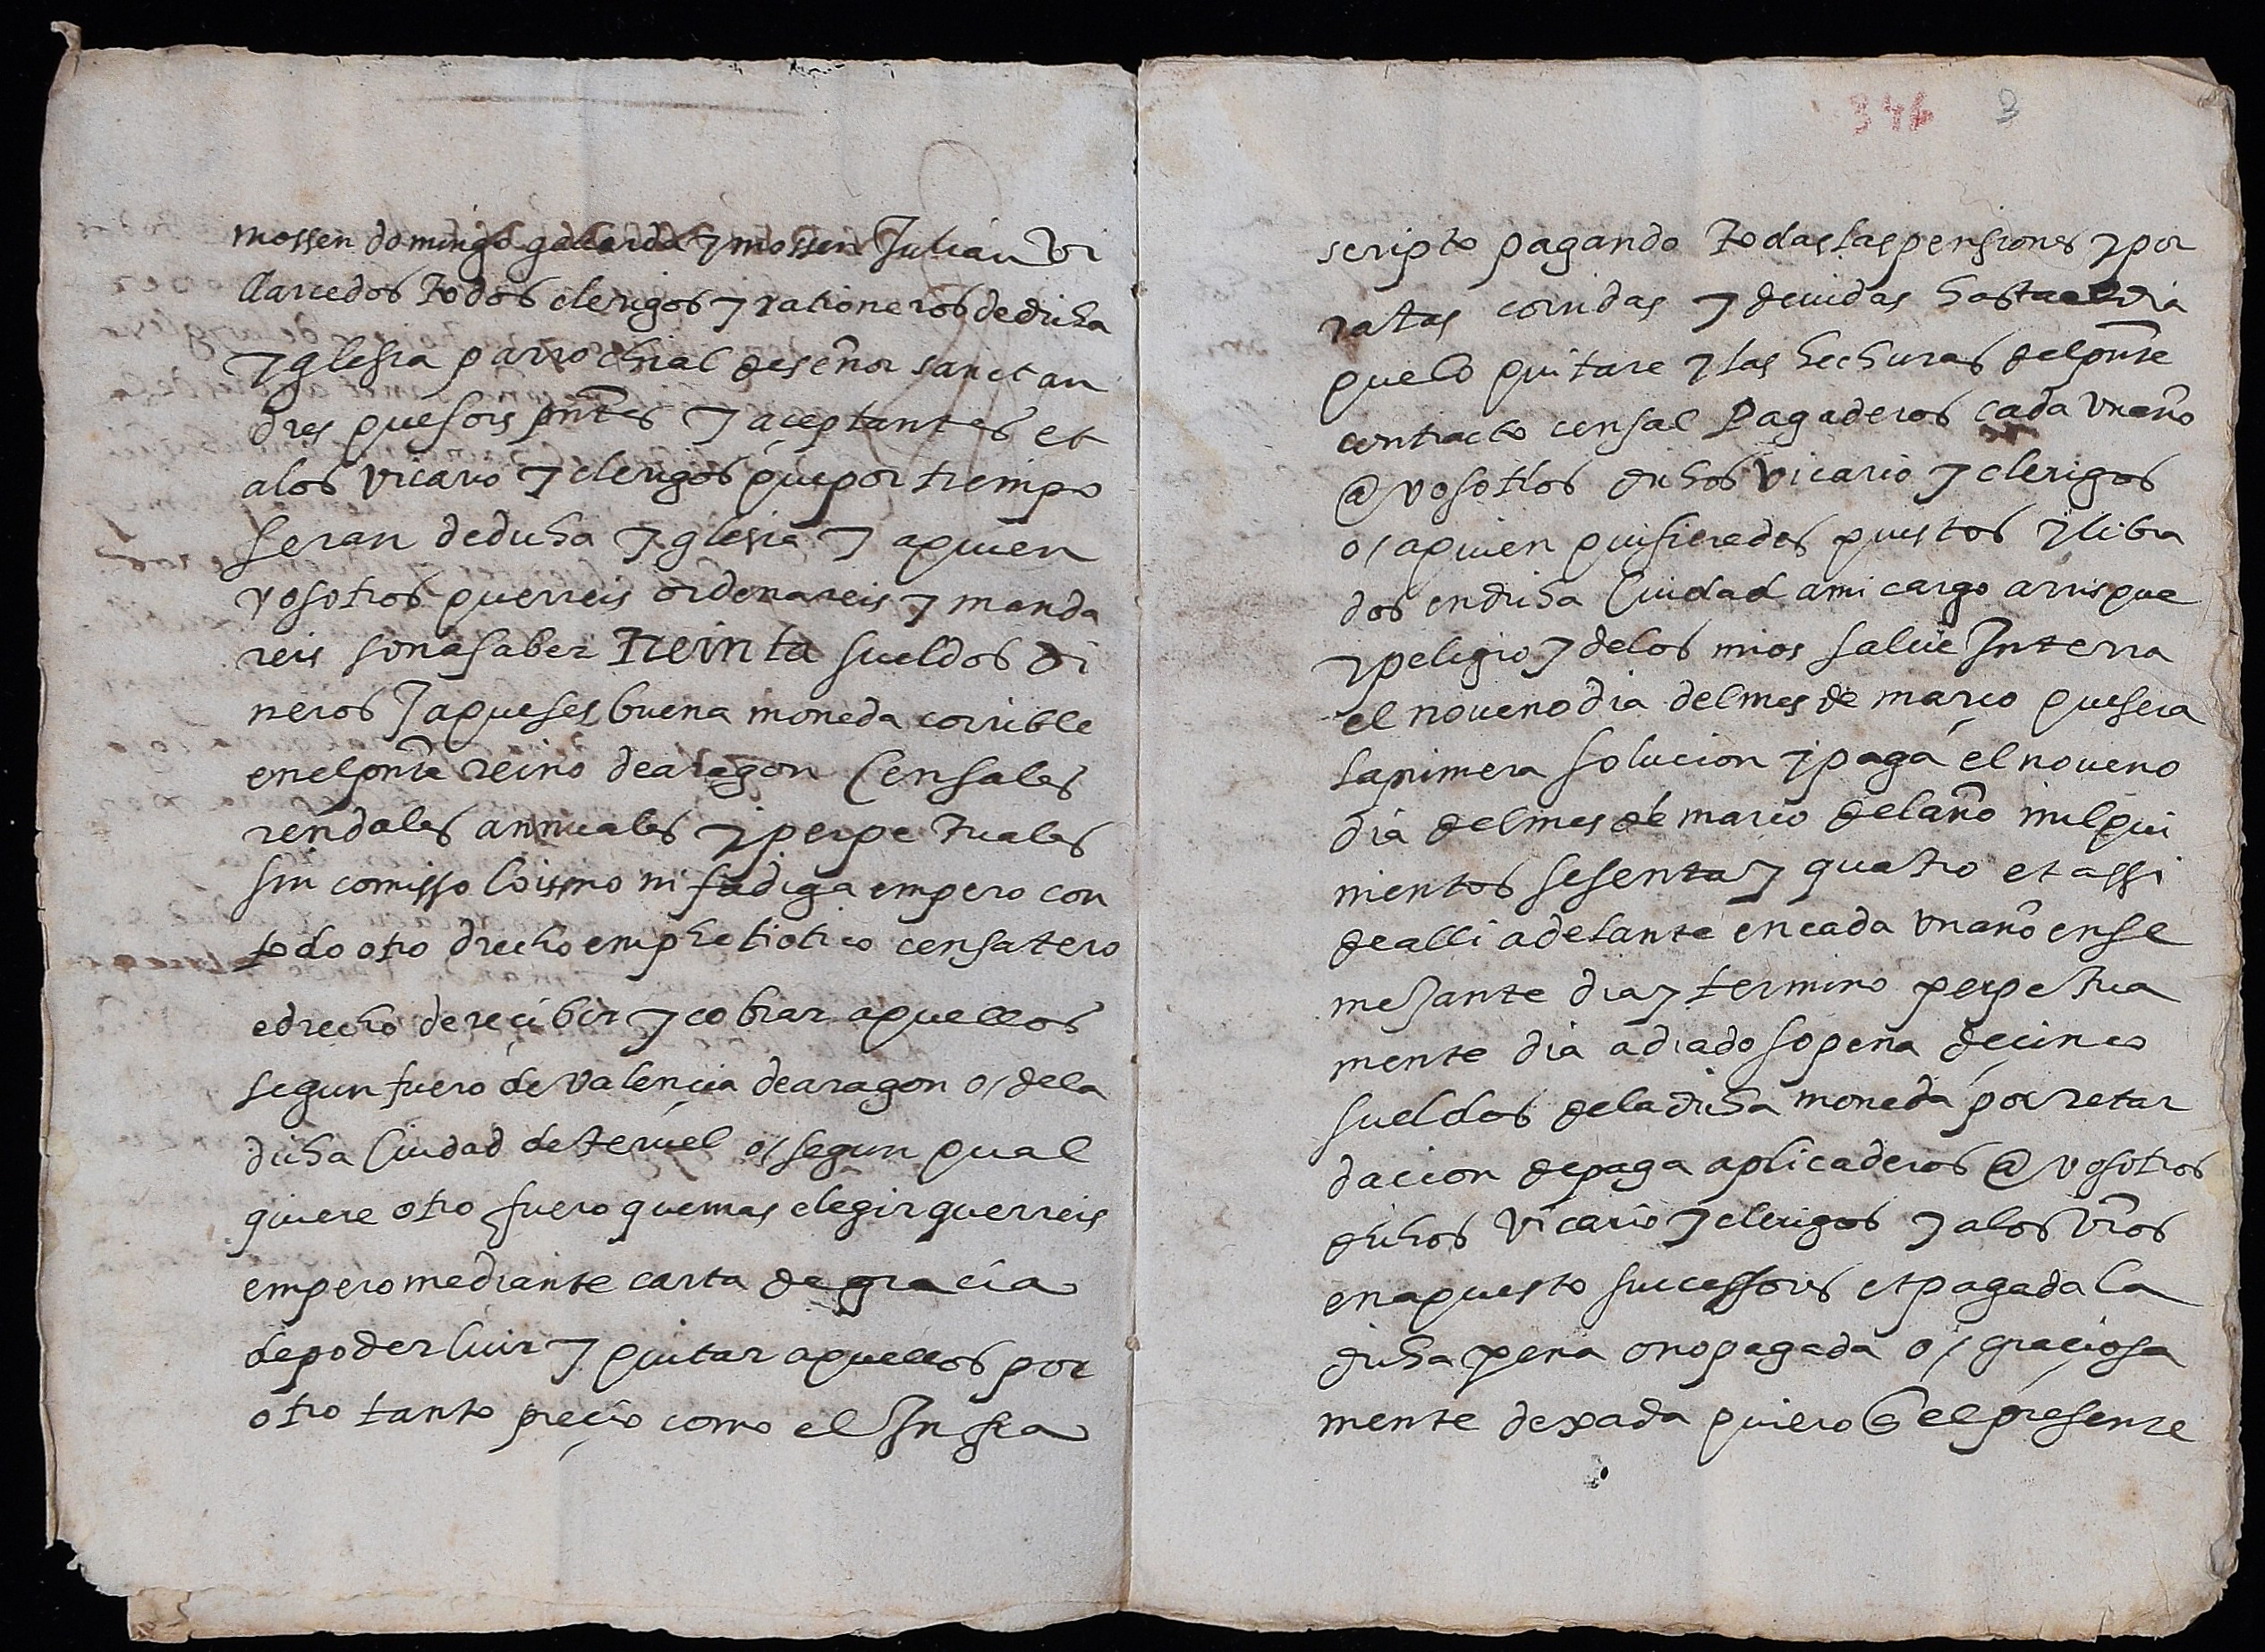 mossen domingo gallarda y mossen Julian Vi
llarcedos todos clerigos y rationeros de dicha
yglesia parrochial de señor sanct an
dres que sois pñtes y aceptantes et
a los vicario y clerigos que por tiempo
seran de dicha yglesia y a quien
vosotros querreis ordenareis y manda
reis son a saber Treinta sueldos di
neros Jaqueses buena moneda corrible
en el pñte reino de aragon Censales
rendales annuales y perpetuales
sin comisso loismo ni fadiga empero con
todo otro drecho emphetiotico censatero
e drecho de recibir y cobrar aquellos
segun fuero de valencia de aragon o/ de la
dicha Ciudad de teruel o/ segun qual
quiere otro fuero que mas elegir querreis
empero mediante carta de gracia
de poder luir y quitar aquellos por
otro tanto preçio como el Infra
344 3
scripto pagando todas las pensiones y por
ratas corridas y deuidas hasta el dia
que lo quitare y las hechuras del pñte
contracto censal Pagaderos cada vn año
@ vosotros dichos vicario y clerigos
o/ a quien quisieredes puestos y libra
dos en dicha Ciudad a mi cargo arrisque
y peligro y de los mios salue Interra
el noueno dia del mes de março que sera
la primera solucion y paga el noueno
dia del mes de março del año mil qui
nientos sesenta y quatro et assi
de alli adelante en cada vn año en se
mejante dia y termino perpetua
mente dia adiado so pena de çinco
sueldos de la dicha moneda por retar
dacion de paga aplicaderos @ vosotros
dichos vicario y clerigos y a los vr̃os
en aquesto successores et pagada la
dicha pena o no pagada o/ graçiosa
mente dexada quiero q̃ el presente